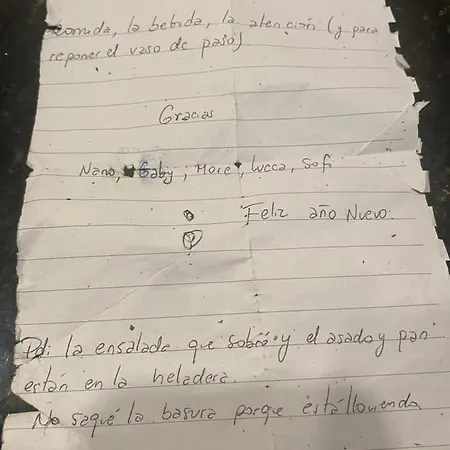 comida, la bebida, la atención (y para
reponer el vaso de paso)
Gracias
Nano, Gaby, More, Lucca, Sofi
Feliz año Nuevo.
Pd: la ensalada que sobró y el asado y pan
están en la heladera.
No saqué la basura porque está lloviendo